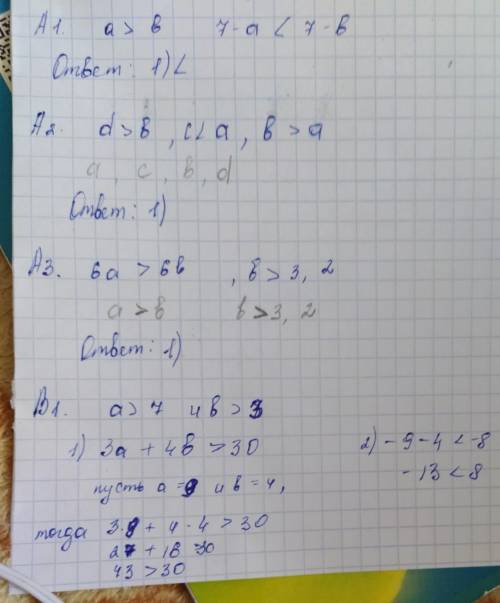 А1. a > b 7-a < 7-b
Ответ: 1) <
А2. d > b, c < a, b > a
a, c, b, d
Ответ: 1)
А3. 6a > 6b, b > 3,2
a > b b > 3,2
Ответ: 1)
В1. a > 7 и b > 3
1) 3a + 4b > 30 2) -9-4 < -8
пусть a = 9 и b = 4, -13 < 8
тогда 3·9 + 4·4 > 30
27 + 16 > 30
43 > 30